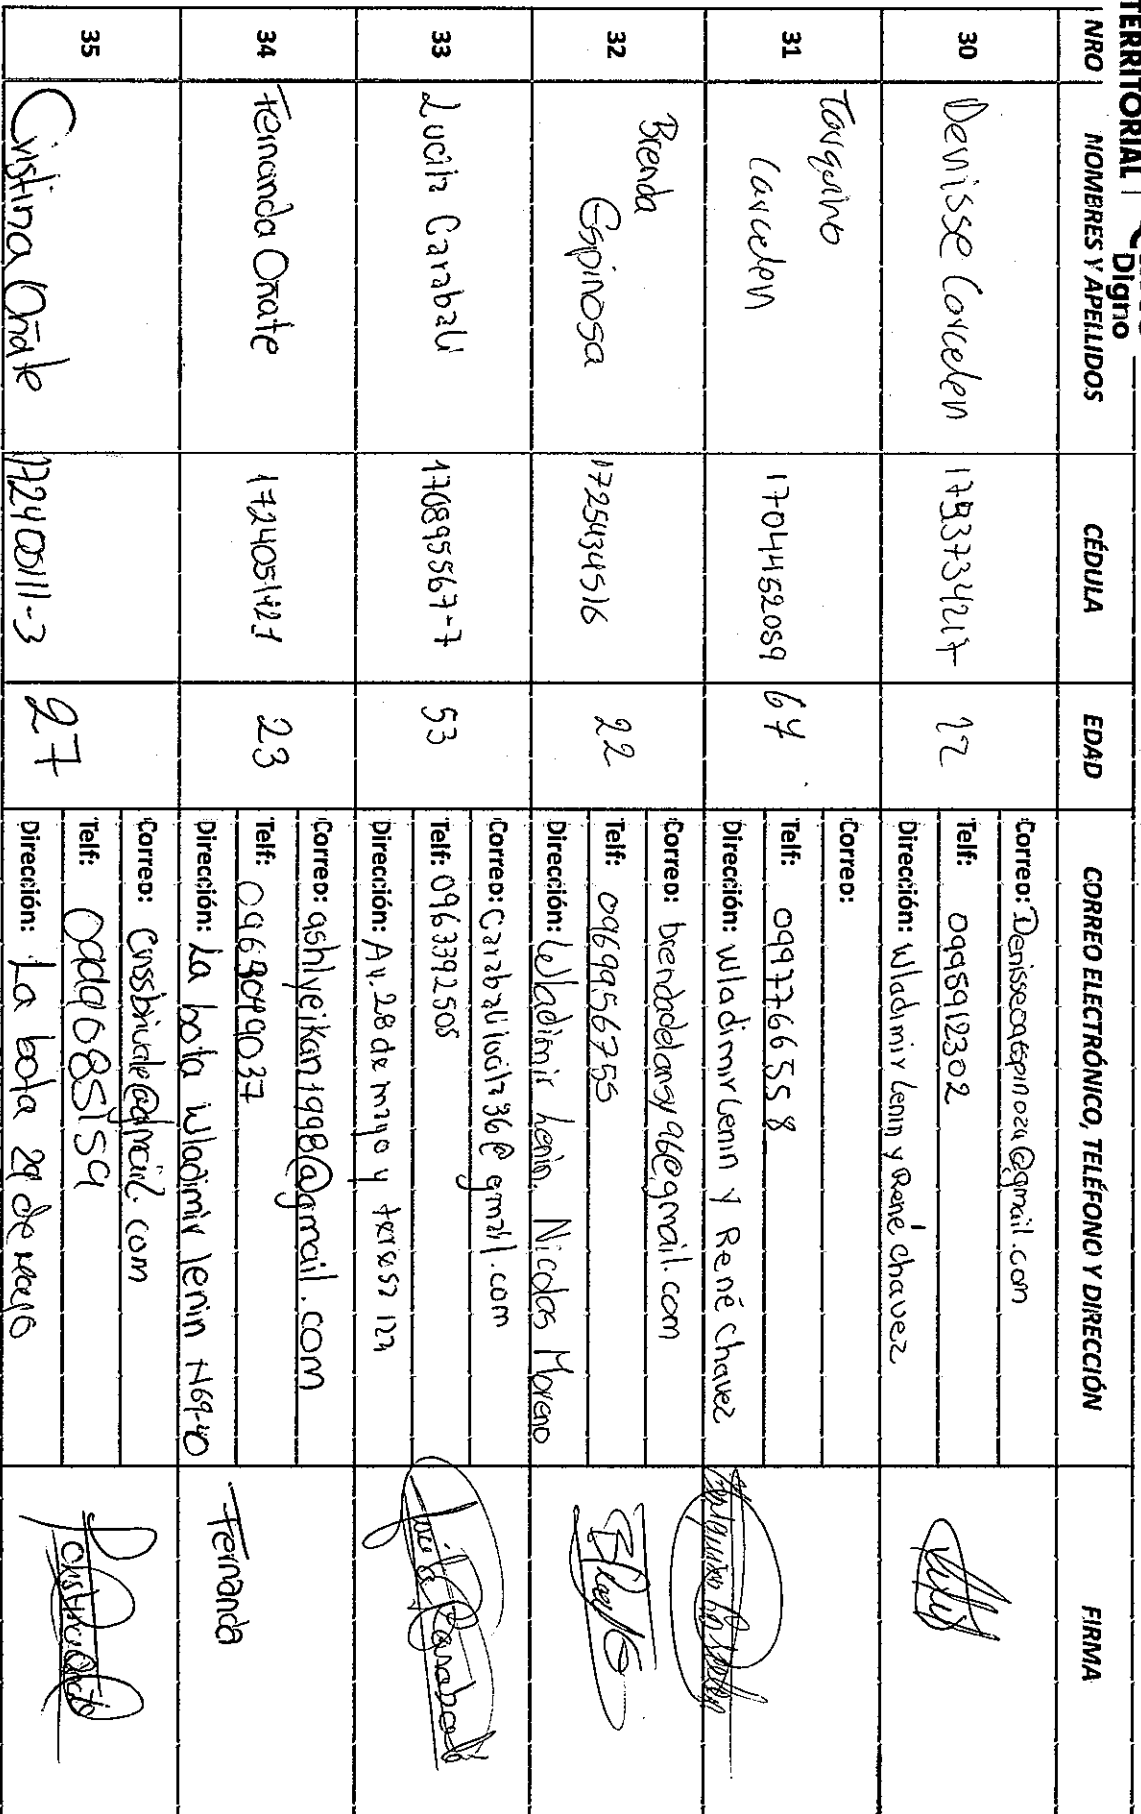 TERRITORIAL
Digno
NRO NOMBRES Y APELLIDOS CÉDULA EDAD CORREO ELECTRÓNICO, TELÉFONO Y DIRECCIÓN FIRMA
30 Denisse Carcelen 12
Correo: @gmail.com
Telf: 0995912302
Dirección: Wladimir Lenin y René chavez
31 Tarquino
Carcelen
1704452089 64
Correo:
Telf: 0997766558
Dirección: Wladimir Lenin y René Chavez
32 Brenda
Espinosa
1725434516 22
Correo: brendadelansy96@gmail.com
Telf: 0969956755
Dirección: Wladimir Lenin. Nicolas Moreno
33 Lucila Carabali 170895567-7 53
Correo: carabalilucila36@gmail.com
Telf: 0963392505
Dirección: Av. 28 de mayo y
34 Fernanda Oñate 1724051427 23
Correo: ashlyeikan1998@gmail.com
Telf: 0969049037
Dirección: La bota Wladimir lenin N69-40
Fernanda
35 Cristina Oñate 172405111-3 27
Correo: .com
Telf: 0990685159
Dirección: La bota 29 de mayo